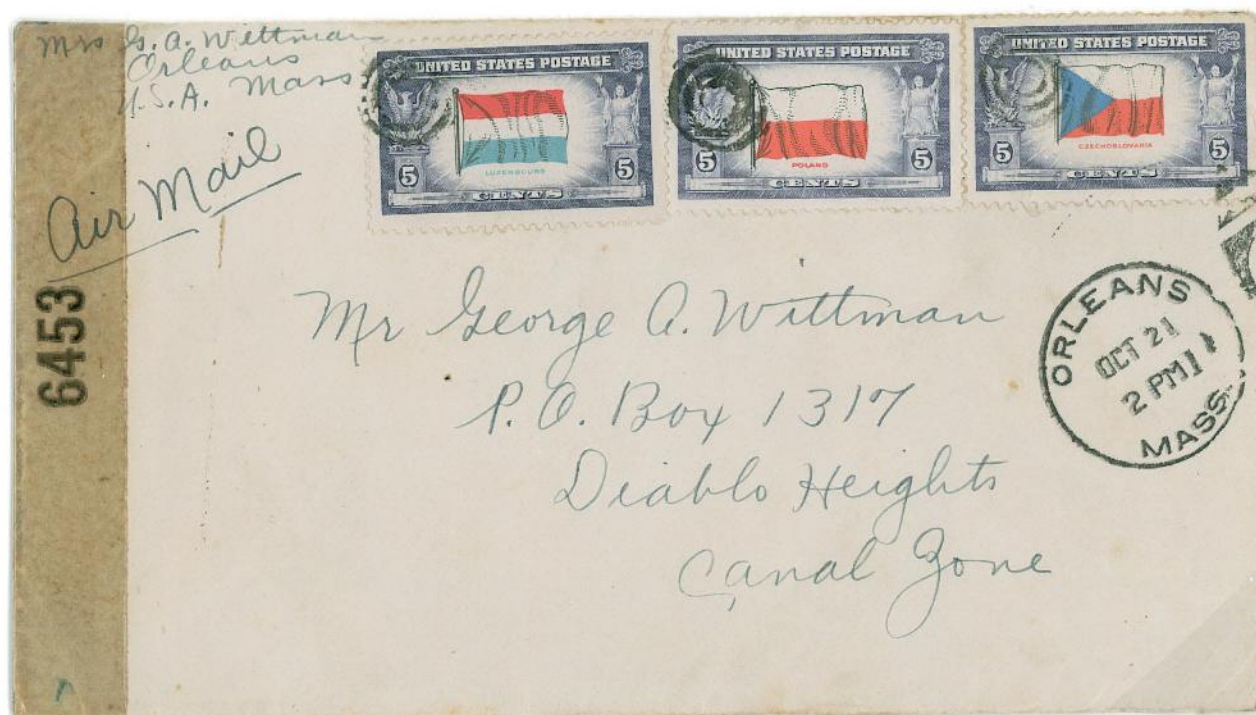 Mrs G. A. Wittman
Orleans
U.S.A. Mass
Air Mail
UNITED STATES POSTAGE
LUXEMBOURG
5 5
CENTS
UNITED STATES POSTAGE
POLAND
5 5
CENTS
UNITED STATES POSTAGE
CZECHOSLOVAKIA
5 5
CENTS
6453
ORLEANS
OCT 21
2 PM
MASS.
Mr George A. Wittman
P.O. Box 1317
Diablo Heights
Canal Zone